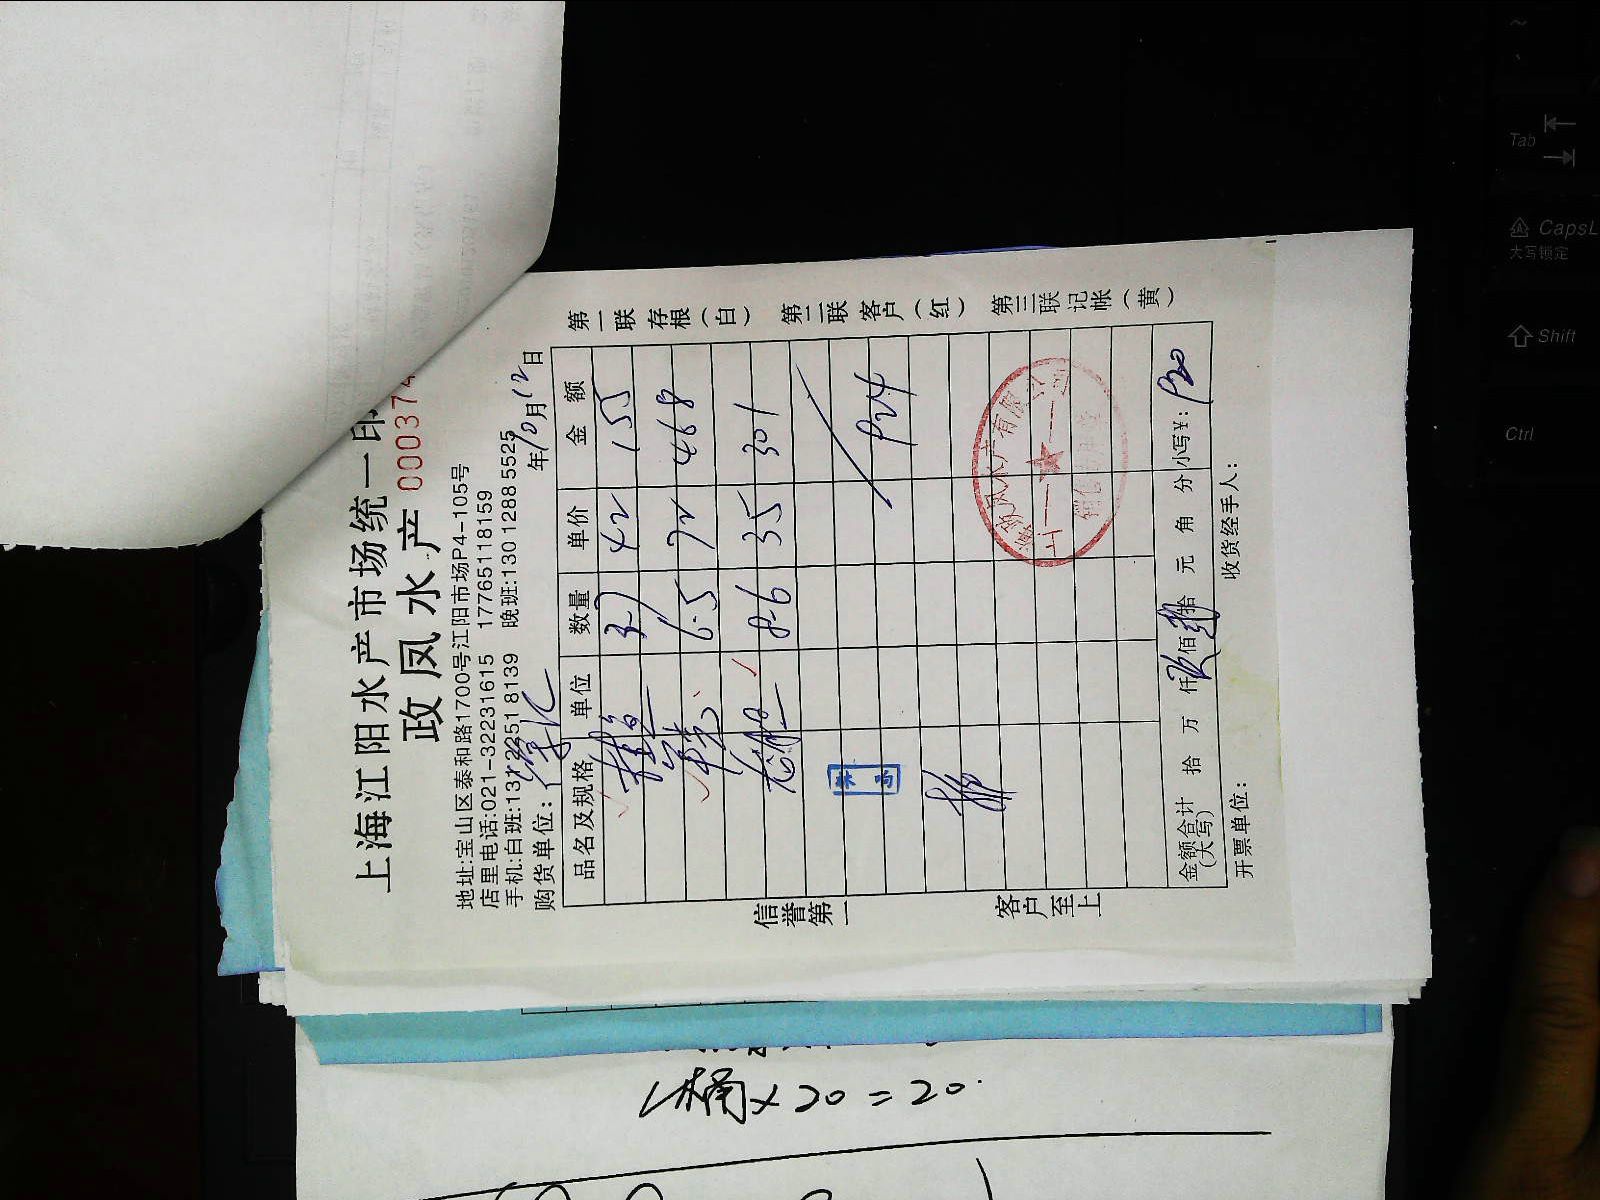 上海江阳水产市场统一印
政凤水产 000374
地址:宝山区泰和路1700号江阳市场P4-105号
店里电话:021-32231615 17765118159
手机:白班:13122518139 晚班:13012885525
购货单位: 年10月12日
品名及规格 单位 数量 单价 金额
桂鱼 3.7 42 155
6.5 72 468
8.6 35 301
924
金额合计(大写) 拾 万 仟 玖佰 拾 元 角 分 小写¥: 920
开票单位: 收货经手人:
信誉第一 客户至上
第一联存根(白) 第二联客户(红) 第三联记帐(黄)
1桶×20=20.
Tab
CapsL
大写锁定
Shift
Ctrl